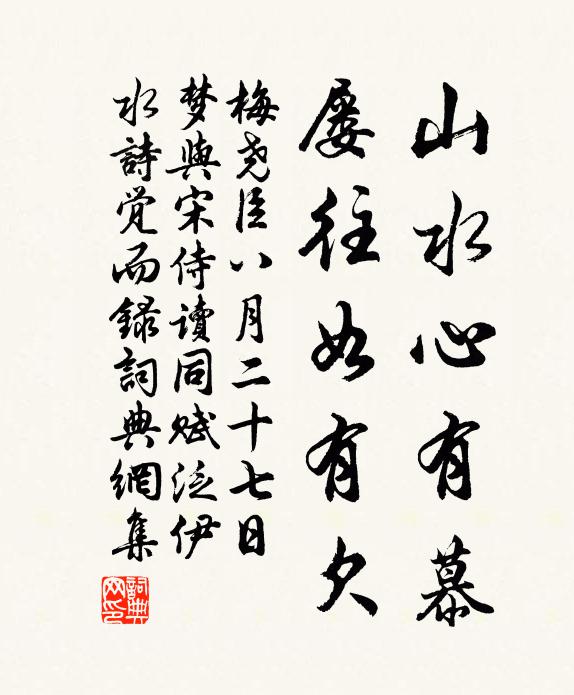 山水心有慕
屡往如有欠
梅尧臣八月二十七日
梦與宋侍讀同赋泛伊
水詩觉而録詞典網集
詞典
网印